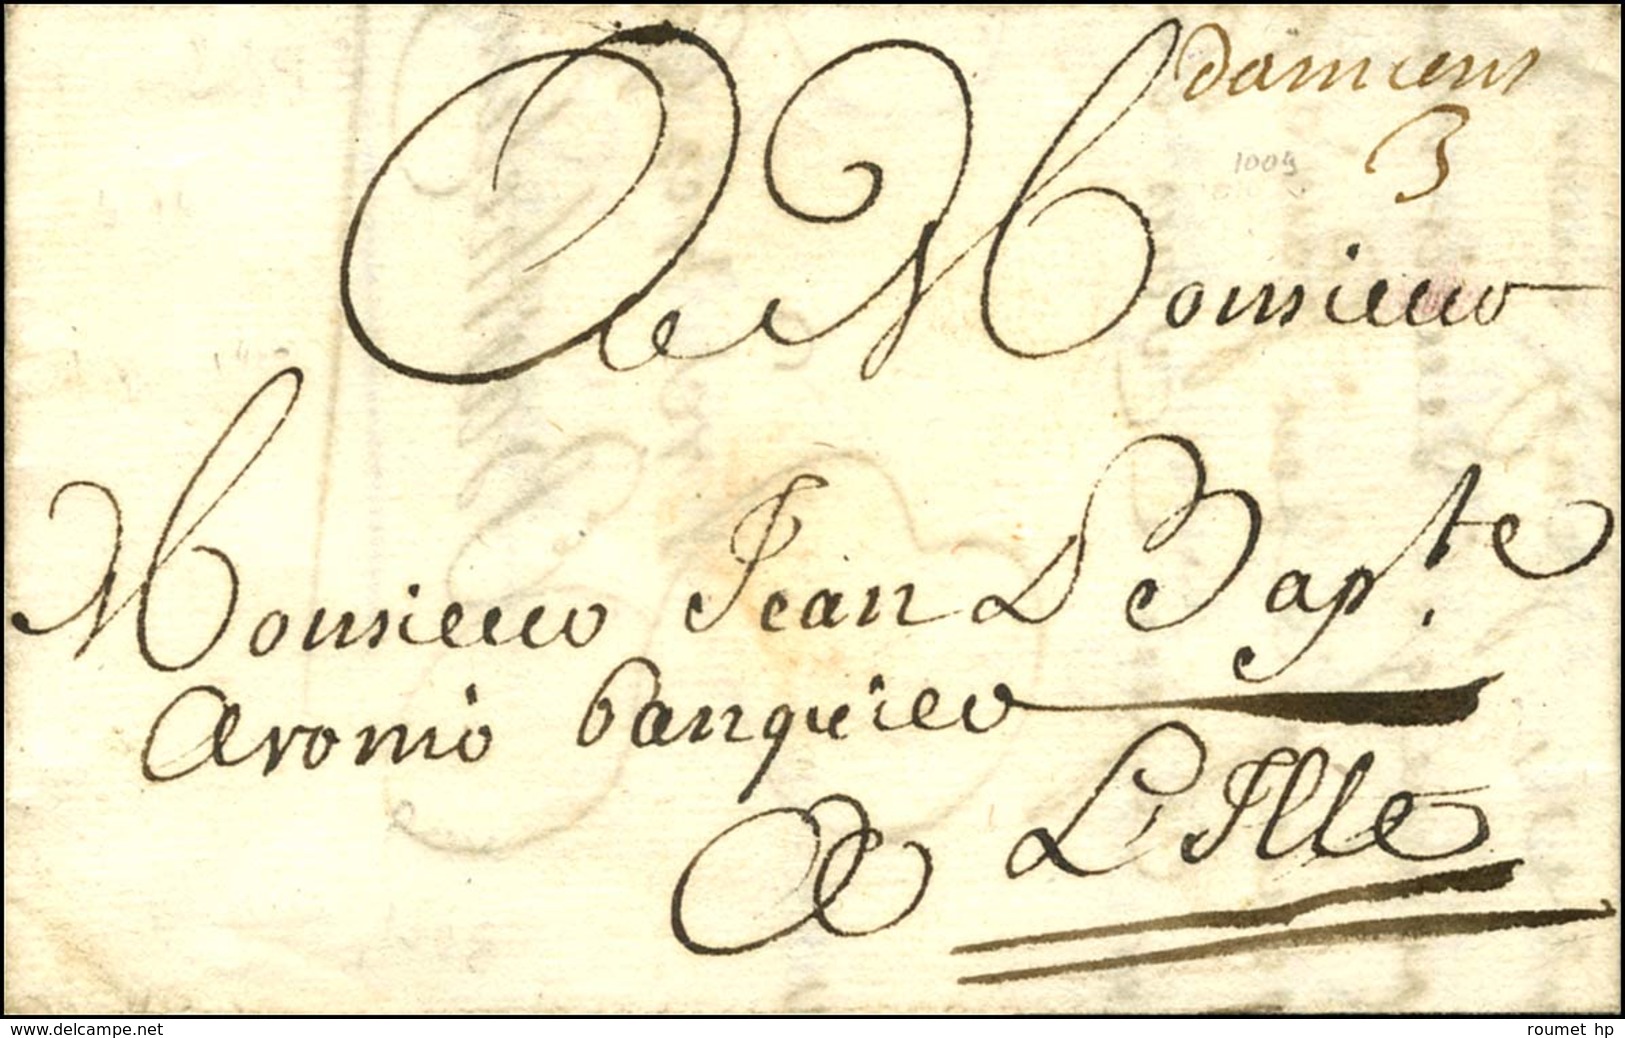 damiens
3
1009
A Monsieur
Monsieur Jean Bapte
Aronio banquier
A Lille
www.delcampe.net
roumet hp